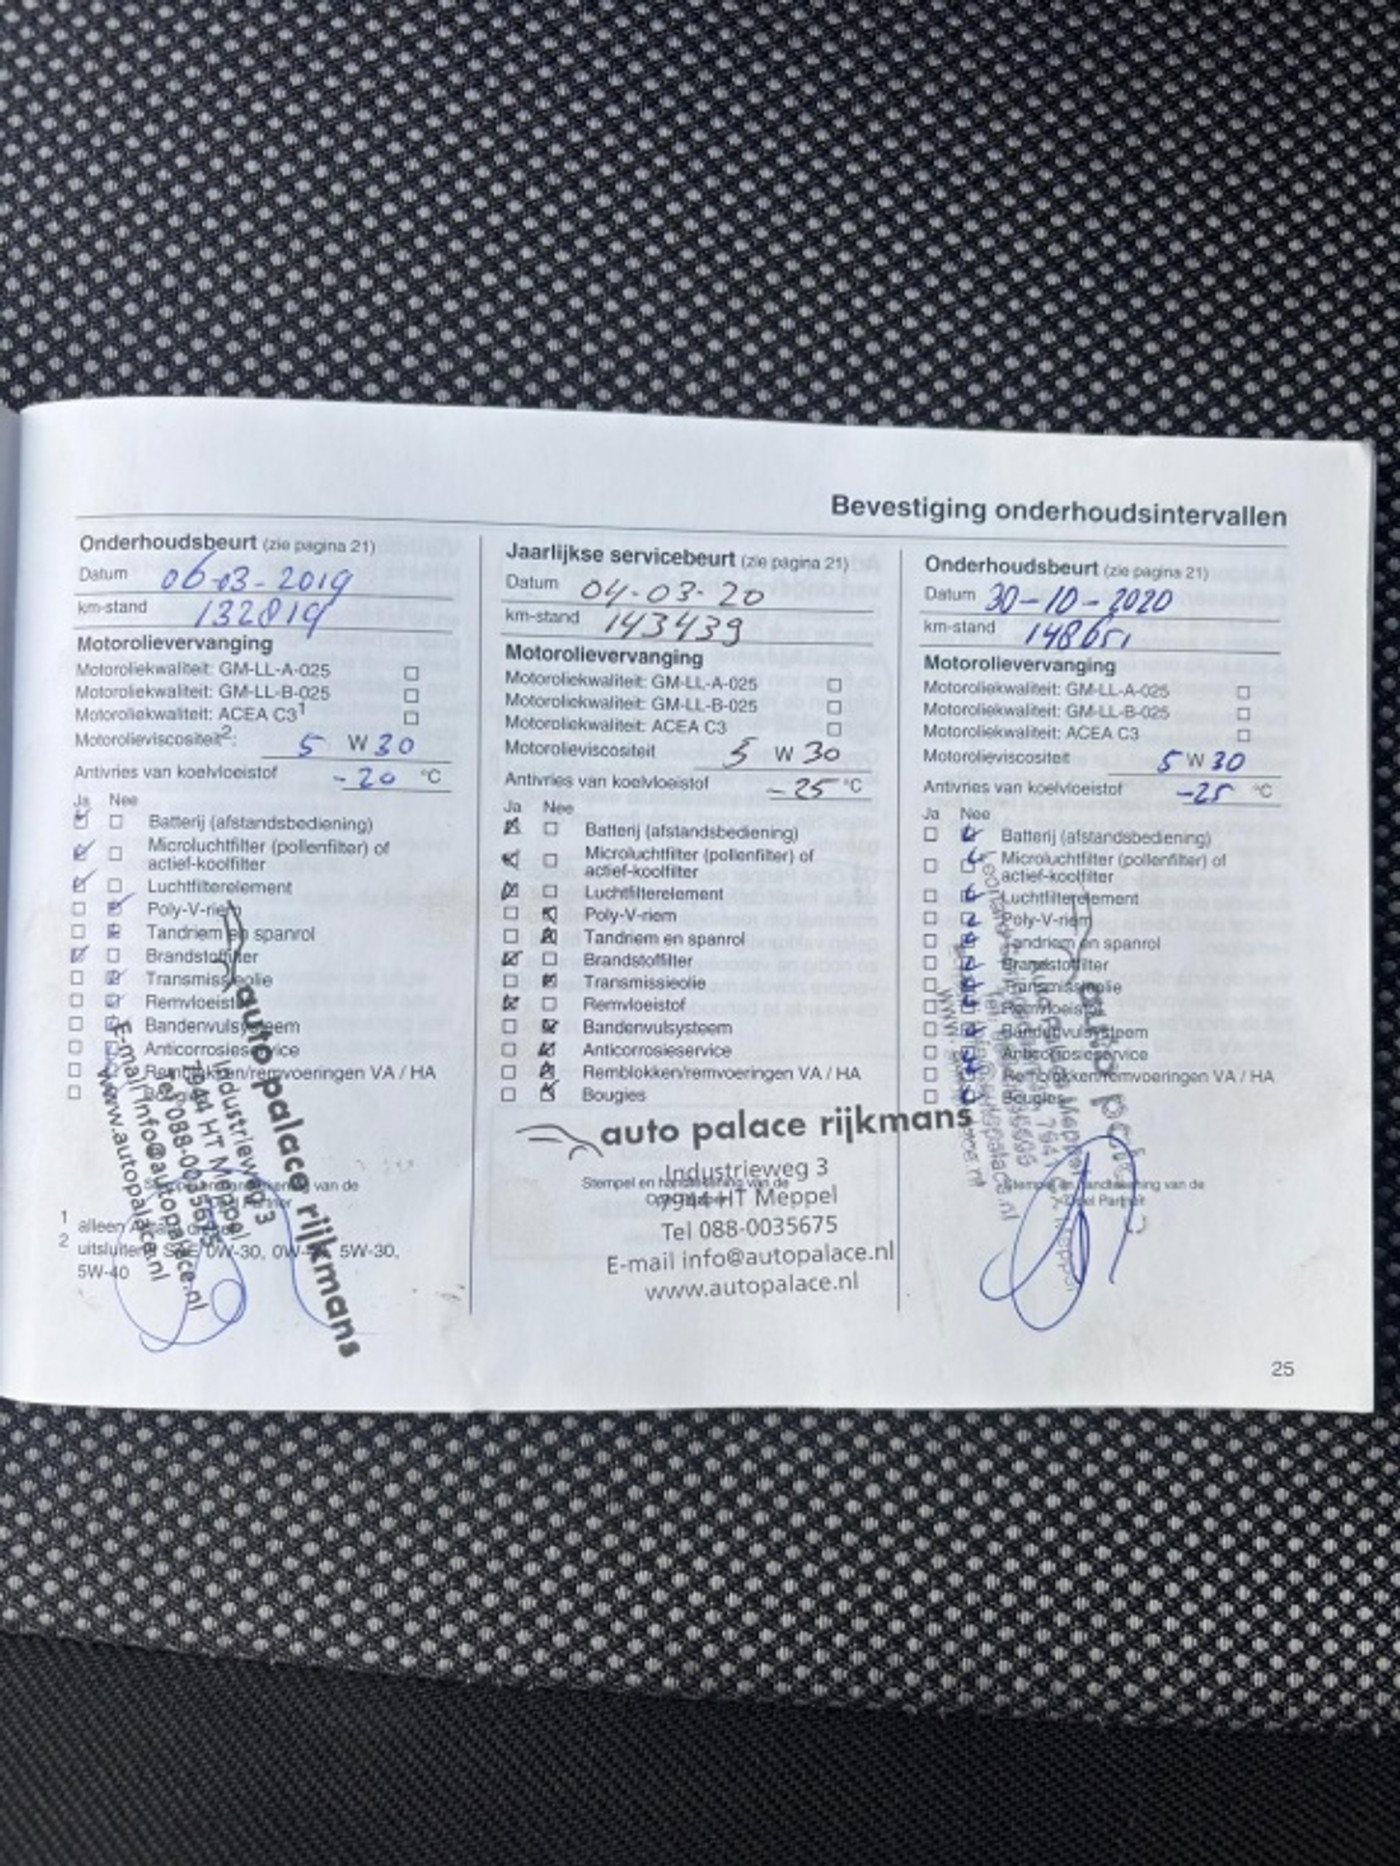 Bevestiging onderhoudsintervallen
Onderhoudsbeurt (zie pagina 21)
Datum 06-03-2019
km-stand 132819
Motorolievervanging
Motoroliekwaliteit: GM-LL-A-025
Motoroliekwaliteit: GM-LL-B-025
Motoroliekwaliteit: ACEA C3¹
Motorolieviscositeit²: 5 W 30
Antivries van koelvloeistof -20 °C
Ja Nee
Batterij (afstandsbediening)
Microluchtfilter (pollenfilter) of
actief-koolfilter
Luchtfilterelement
Poly-V-riem
Tandriem en spanrol
Brandstoffilter
Transmissieolie
Remvloeistof
Bandenvulsysteem
Anticorrosieservice
Remblokken/remvoeringen VA / HA
Bougies
auto palace rijkmans
Industrieweg 3
7944 HT Meppel
Tel 088-0035675
E-mail info@autopalace.nl
www.autopalace.nl
1 alleen
2 uitsluitend SAE 0W-30, 5W-30,
5W-40
Jaarlijkse servicebeurt (zie pagina 21)
Datum 04-03-20
km-stand 143439
Motorolievervanging
Motoroliekwaliteit: GM-LL-A-025
Motoroliekwaliteit: GM-LL-B-025
Motoroliekwaliteit: ACEA C3
Motorolieviscositeit 5 W 30
Antivries van koelvloeistof -25 °C
Ja Nee
Batterij (afstandsbediening)
Microluchtfilter (pollenfilter) of
actief-koolfilter
Luchtfilterelement
Poly-V-riem
Tandriem en spanrol
Brandstoffilter
Transmissieolie
Remvloeistof
Bandenvulsysteem
Anticorrosieservice
Remblokken/remvoeringen VA / HA
Bougies
auto palace rijkmans
Stempel en handtekening van de
Industrieweg 3
7944 HT Meppel
Tel 088-0035675
E-mail info@autopalace.nl
www.autopalace.nl
Onderhoudsbeurt (zie pagina 21)
Datum 30-10-2020
km-stand 148651
Motorolievervanging
Motoroliekwaliteit: GM-LL-A-025
Motoroliekwaliteit: GM-LL-B-025
Motoroliekwaliteit: ACEA C3
Motorolieviscositeit 5 W 30
Antivries van koelvloeistof -25 °C
Ja Nee
Batterij (afstandsbediening)
Microluchtfilter (pollenfilter) of
actief-koolfilter
Luchtfilterelement
Poly-V-riem
Tandriem en spanrol
Brandstoffilter
Transmissieolie
Remvloeistof
Bandenvulsysteem
Anticorrosieservice
Remblokken/remvoeringen VA / HA
Bougies
Stempel en handtekening van de
Opel Partner
25